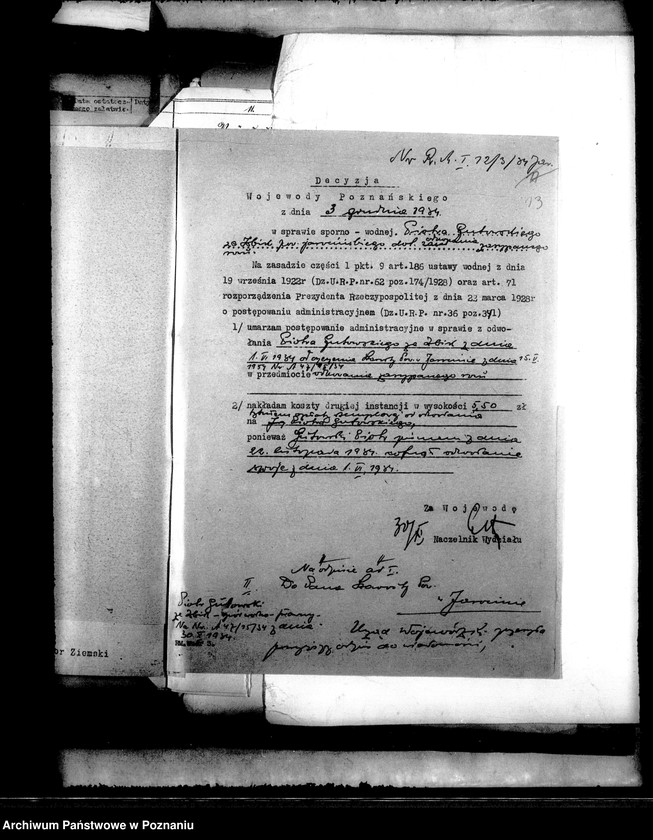 Data ostatecz-
nego załatwie-
11.
Nr R.A. I 12/3/34
13
Decyzja
Wojewody Poznańskiego
z dnia 3 grudnia 1934.
w sprawie sporno - wodnej. Piotra Gutowskiego
ze Żbik. pow. jarocińskiego dot. zasypanego
rowu.
Na zasadzie części 1 pkt. 9 art.186 ustawy wodnej z dnia
19 września 1922r (Dz.U.R.P.nr.62 poz.174/1928) oraz art. 71
rozporządzenia Prezydenta Rzeczypospolitej z dnia 23 marca 1928r
o postępowaniu administracyjnem (Dz.U.R.P. nr.36 poz.341)
1/ umarzam postępowanie administracyjne w sprawie z odwo-
łania Piotra Gutowskiego ze Żbik z dnia
1.VI 1934 Starosty Pow. w Jarocinie z dnia 15.V.
1934 Nr A 47/15/34
w przedmiocie zasypanego rowu
2/ nakładam koszty drugiej instancji w wysokości 5,50 zł
tytułem opłaty stemplowej od odwołania
na Piotra Gutowskiego,
ponieważ Gutowski Piotr pismem z dnia
22. listopada 1934. cofnął odwołanie
swoje z dnia 1.VI.1934.
Za Wojewodę
Naczelnik Wydziału
Na odpisie ad I.
II
Do Pana Starosty Pow.
w Jarocinie
Piotr Gutowski
ze Żbik
Na Nr. A 47/15/34 z dnia
30.X 1934.
Urząd Wojewódzki
odpis do wiadomości,
or Ziemski
Archiwum Państwowe w Poznaniu